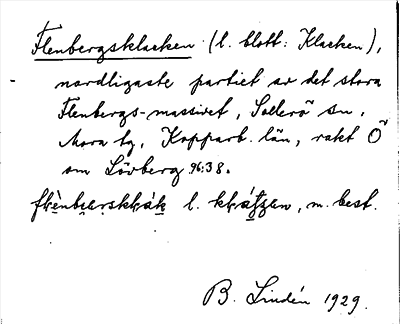 Flenbergsklacken (l. blott: Klacken),
nordligaste partiet av det stora
Flenbergs-massivet, Sollerö sn,
Mora tg, Kopparb. län, rakt Ö
om Lövberg 96:38.
l. , m. best.
B. Lindén 1929.